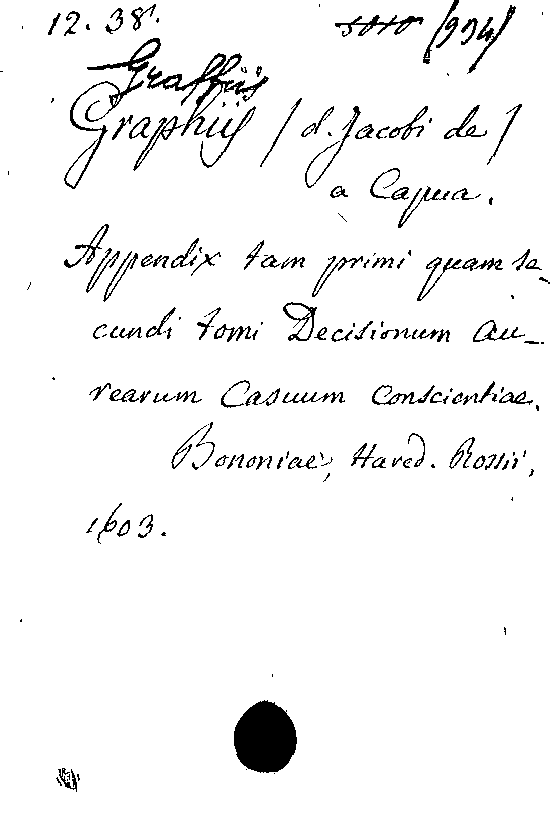 12. 38. 5010 (994)
Graffiis
Graphiis / d. Jacobi de /
a Capua.
Appendix tam primi quam se_
cundi tomi Decisionum Au_
rearum Casuum Conscientiae.
Bononiae, Hared. Rossii,
1603.